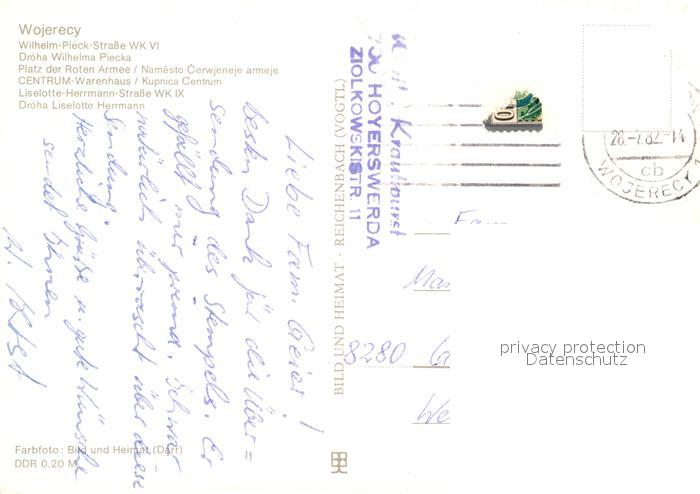 Wojerecy
Wilhelm-Pieck-Straße WK VI
Dróha Wilhelma Piecka
Platz der Roten Armee / Naměsto Čerwjeneje armeje
CENTRUM-Warenhaus / Kupnica Centrum
Liselotte-Herrmann-Straße WK IX
Dróha Liselotte Herrmann
Liebe Fam. Geier!
besten Dank für die Über=
sendung des Stempels. Er
gefällt mir prima. Ich war
natürlich überrascht über diese
Sendung.
Herzliche Grüße u. gute Wünsche
sendet Ihnen
Farbfoto: Bild und Heimat (Darr)
DDR 0,20 M
BILD UND HEIMAT · REICHENBACH (VOGTL)
Krauthorst
HOYERSWERDA
ZIOLKOWSKISTR 11
28.-7.82.-14
cb
WOJERECY 1
Fam
8280
privacy protection
Datenschutz